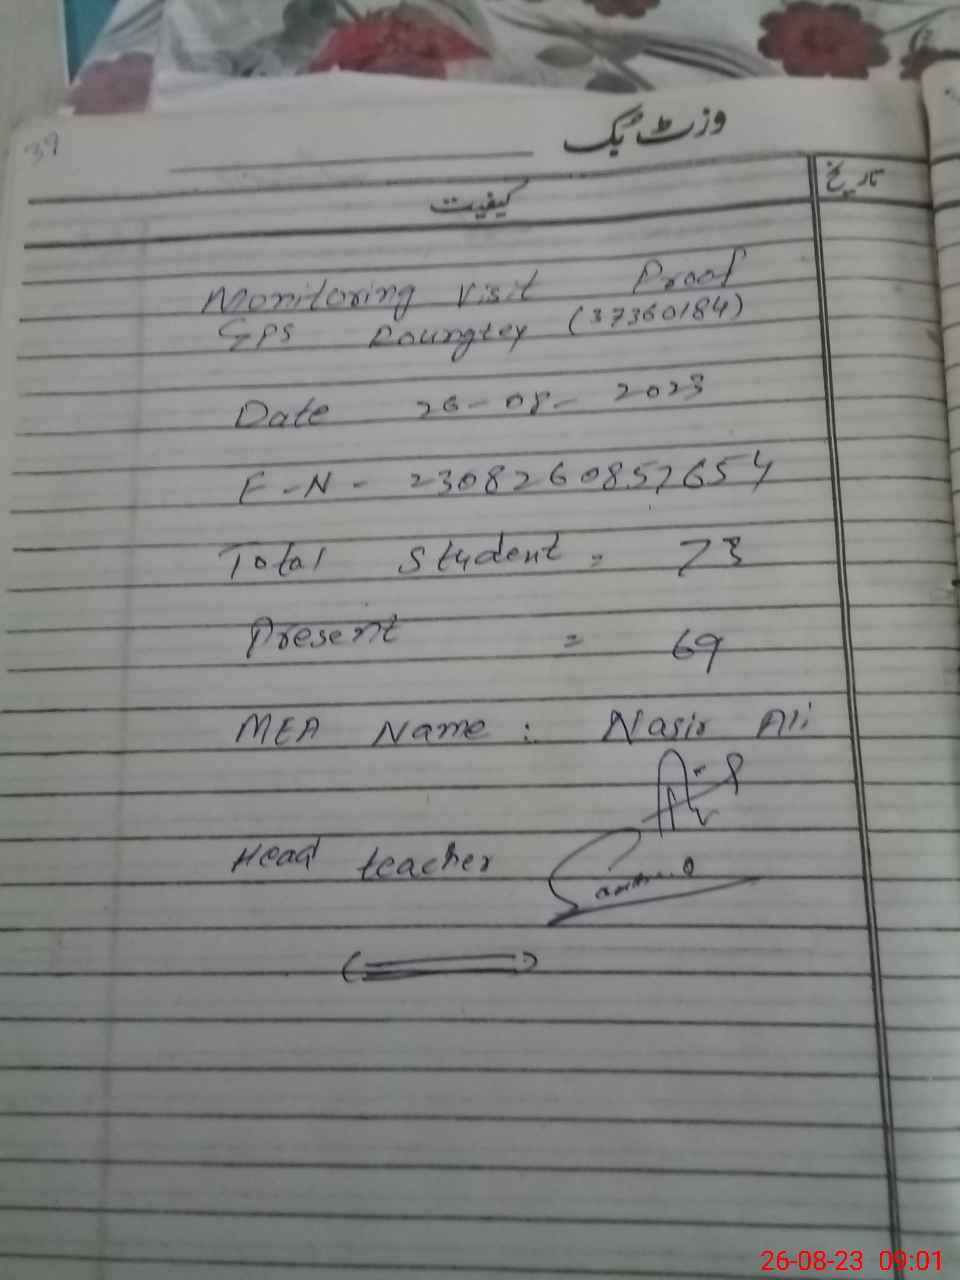 39
وزٹ بک
تاریخ
کیفیت
Monitoring Visit Proof
GPS Roungtey (37360184)
Date 26-08-2023
F-N- 2308260852654
Total Student = 73
Present = 69
MEA Name : Nasir Ali
Head teacher
26-08-23 09:01